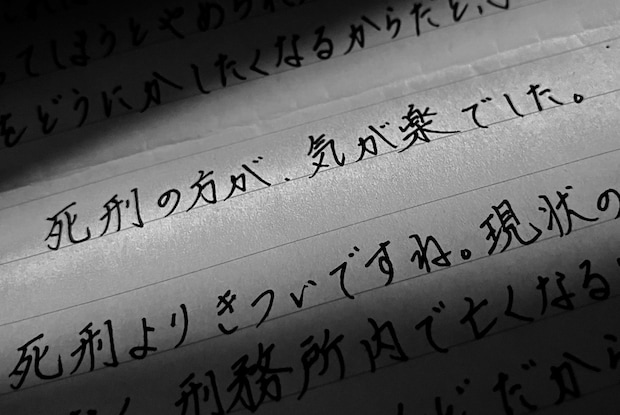 てしまうとやめられ
をどうにかしたくなるからだと、
死刑の方が、気が楽でした。
死刑よりきついですね。現状の
刑務所内で亡くなる
だから